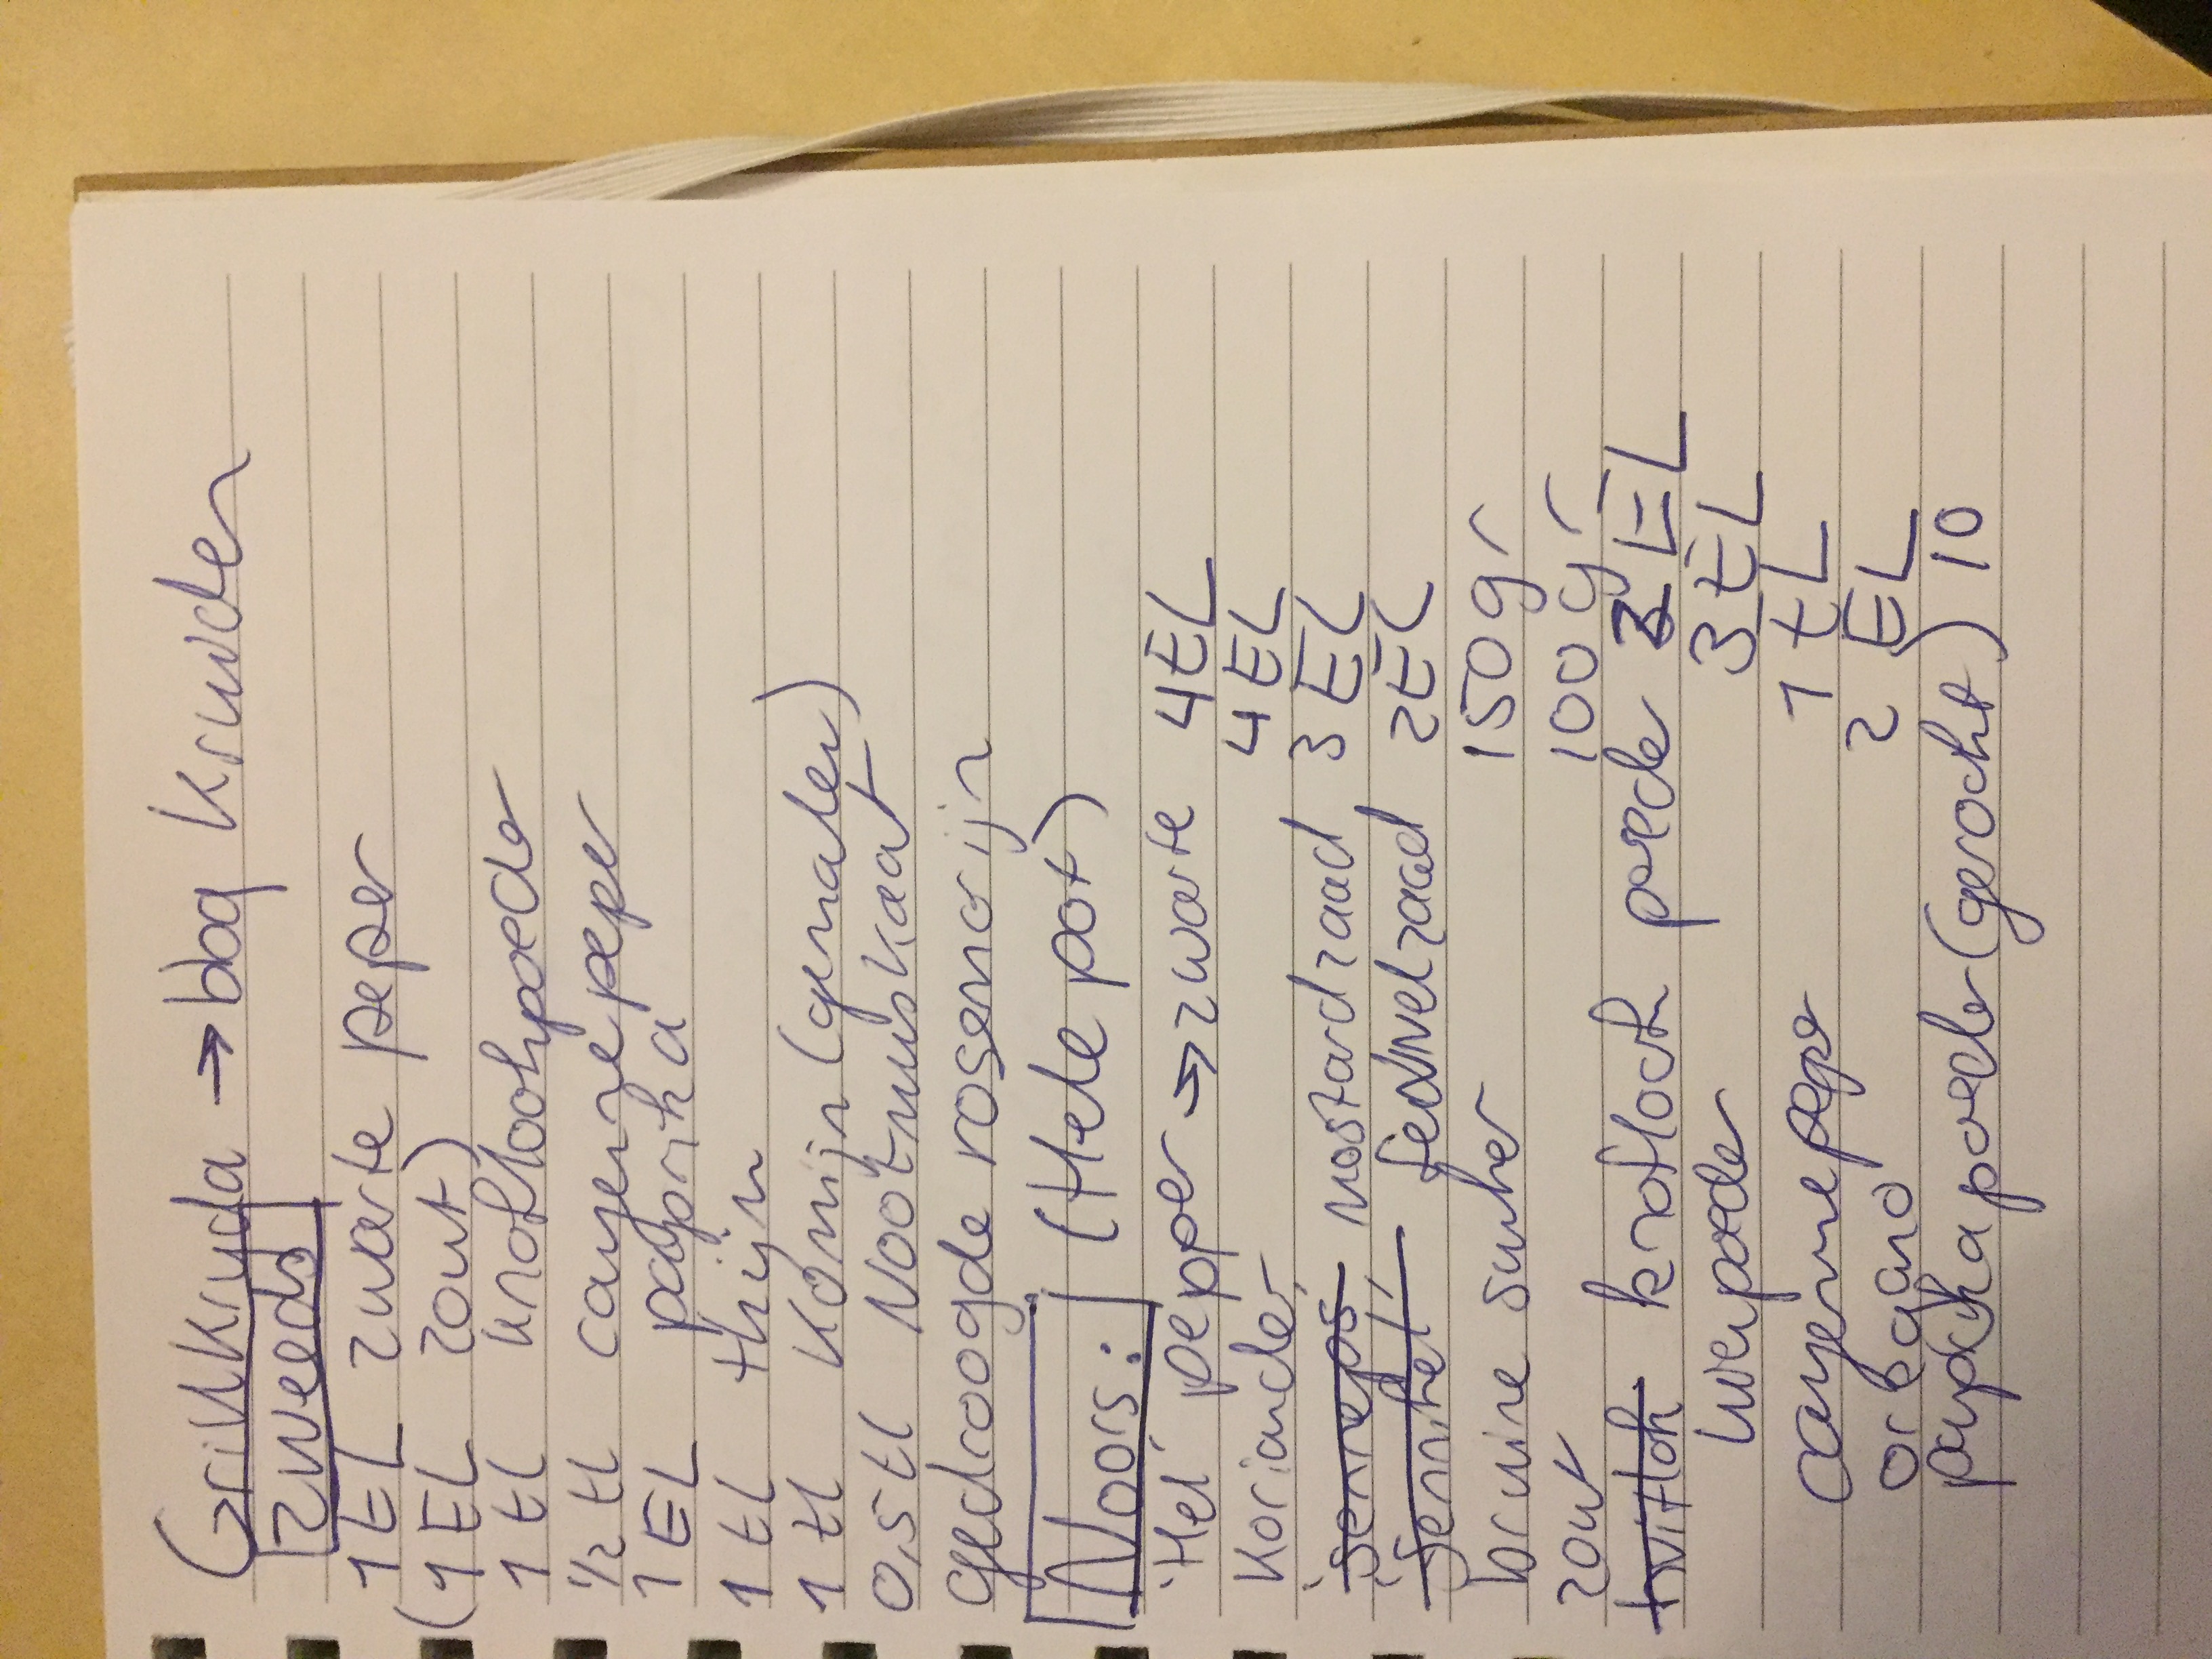 Grillkryda → bbq Kruiden
Zweeds
1 EL zwarte peper
(1 EL zout)
1 tl knoflookpoeder
1/2 tl cayennepeper
1 EL paprika
1 tl thijm
1 tl Komijn (gemalen)
0,5 tl Nootmuskaat
gedroogde rosemarijn
Noors: (Hele pot)
'Hel' pepper → zwarte 4 EL
Koriander 4 EL
'senneps' mostardzaad 3 EL
'fennikel' fennelzaad 2 EL
bruine suiker 150 gr
zout 100 gr
hvitlok knoflook poeder EL
uienpoeder 3 EL
cayennepeper 1 tL
oregano 2 EL
paprikapoeder (gerookt) 10